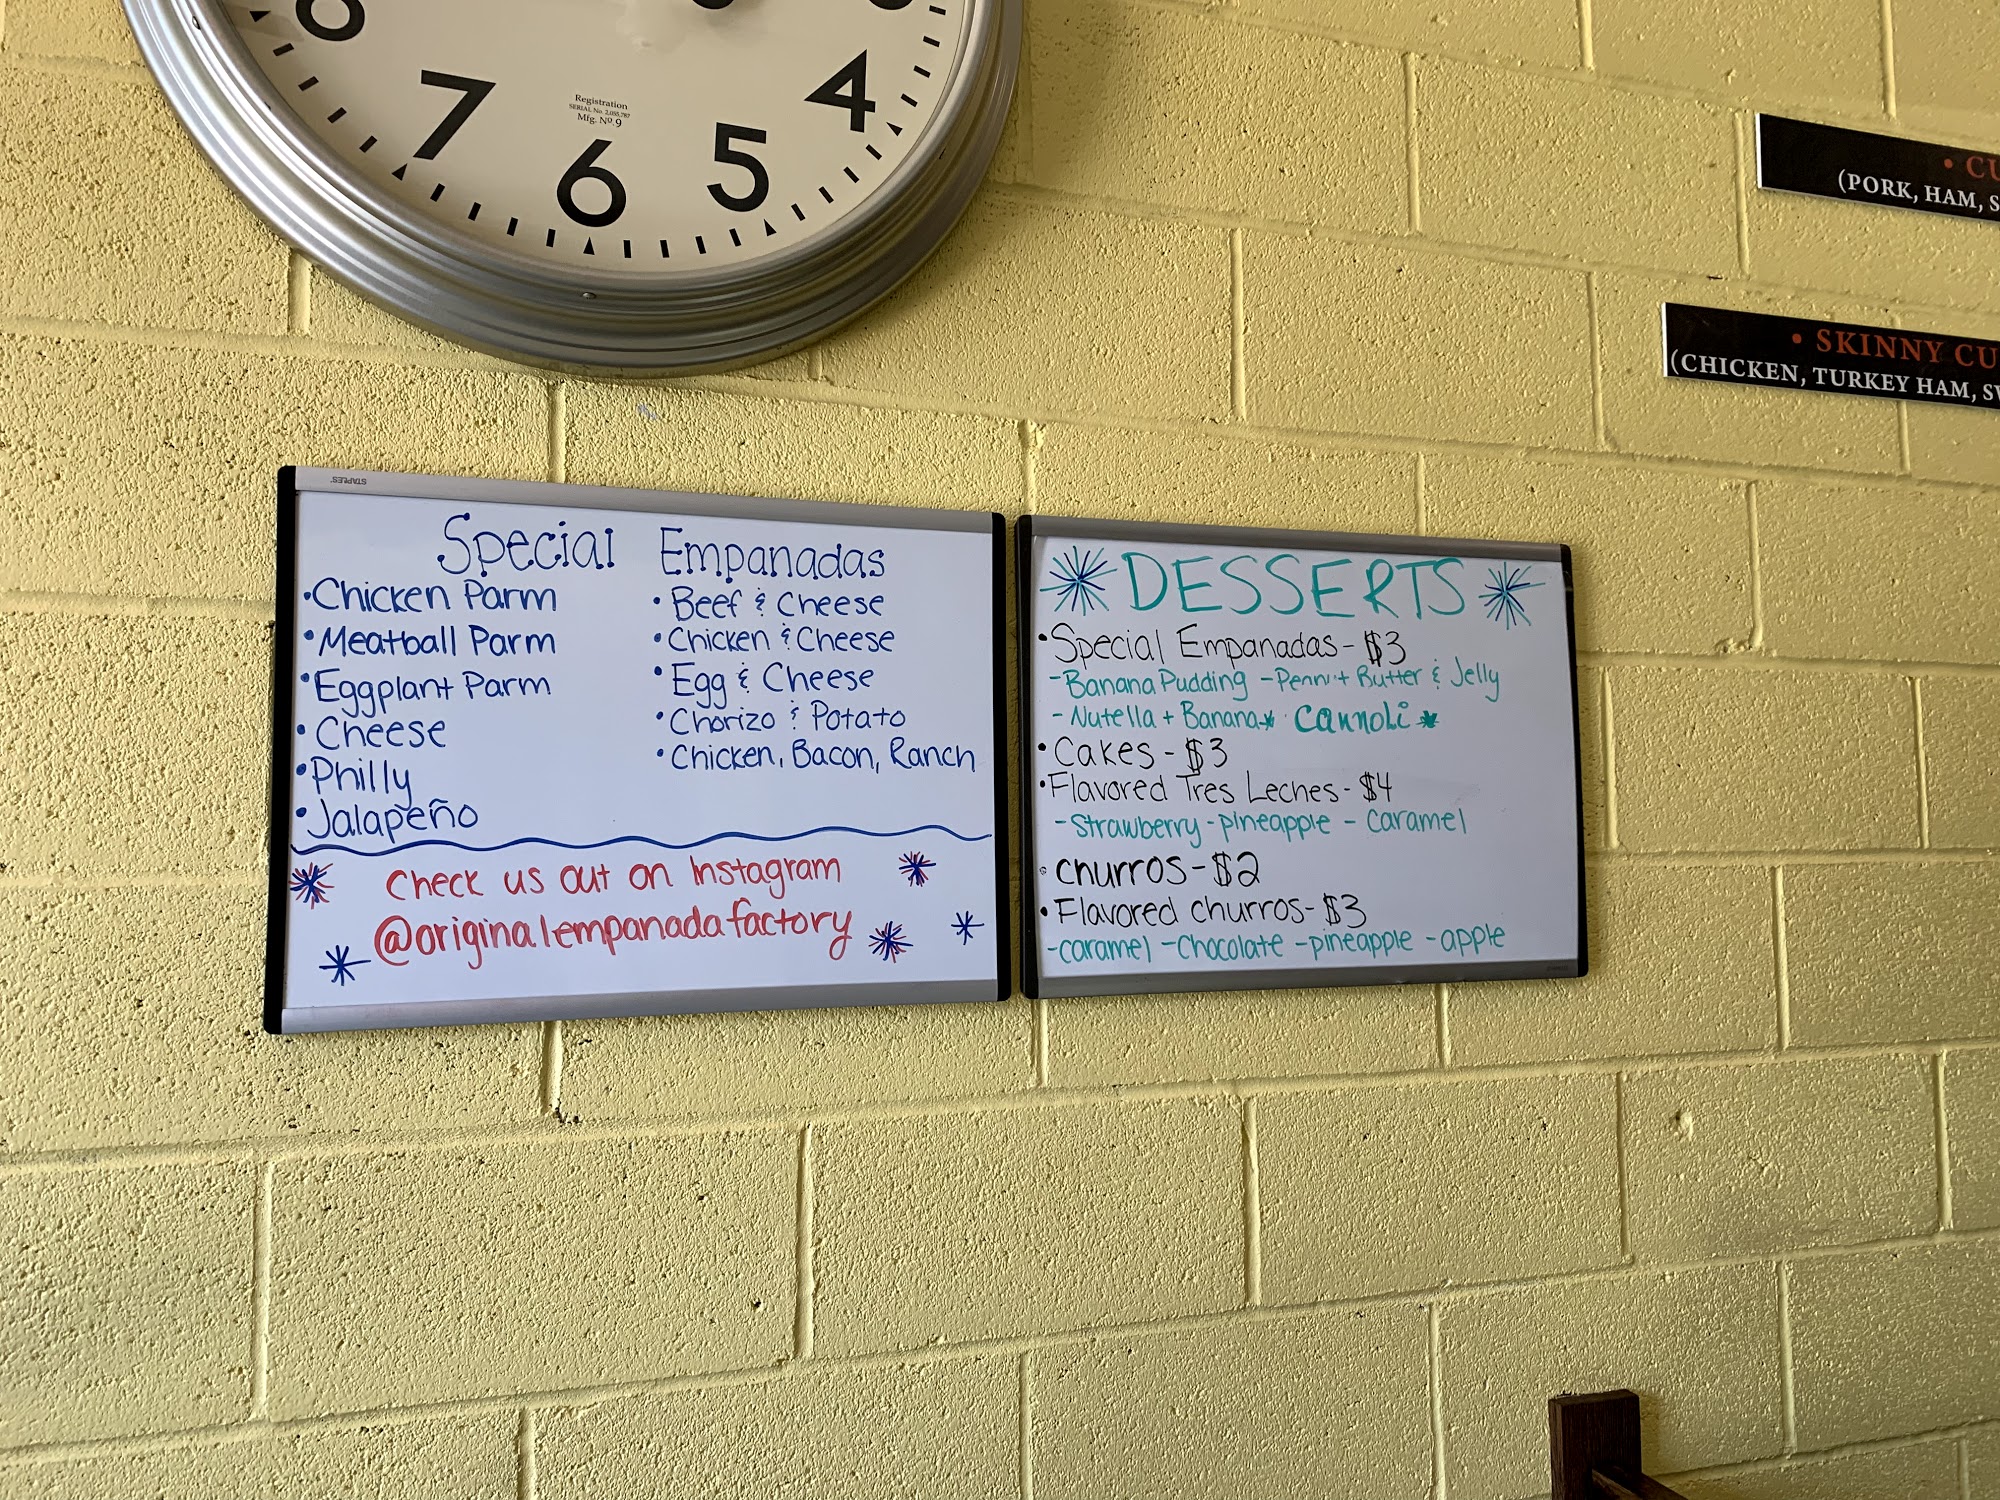 7
6
5
4
Registration
SERIAL No. 2,095,787
Mfg. Nº.9
• CU
(PORK, HAM, S
• SKINNY CU
(CHICKEN, TURKEY HAM, SW
STAPLES
Special Empanadas
• Chicken Parm
• Meatball Parm
• Eggplant Parm
• Cheese
• Philly
• Jalapeño
• Beef & Cheese
• Chicken & Cheese
• Egg & Cheese
• Chorizo & Potato
• Chicken, Bacon, Ranch
Check us out on Instagram
@originalempanadafactory
DESSERTS
• Special Empanadas - $3
- Banana Pudding - Peanut Butter & Jelly
- Nutella + Banana * Cannoli *
• Cakes - $3
• Flavored Tres Leches - $4
- Strawberry - pineapple - caramel
• churros - $2
• Flavored churros - $3
- caramel - chocolate - pineapple - apple